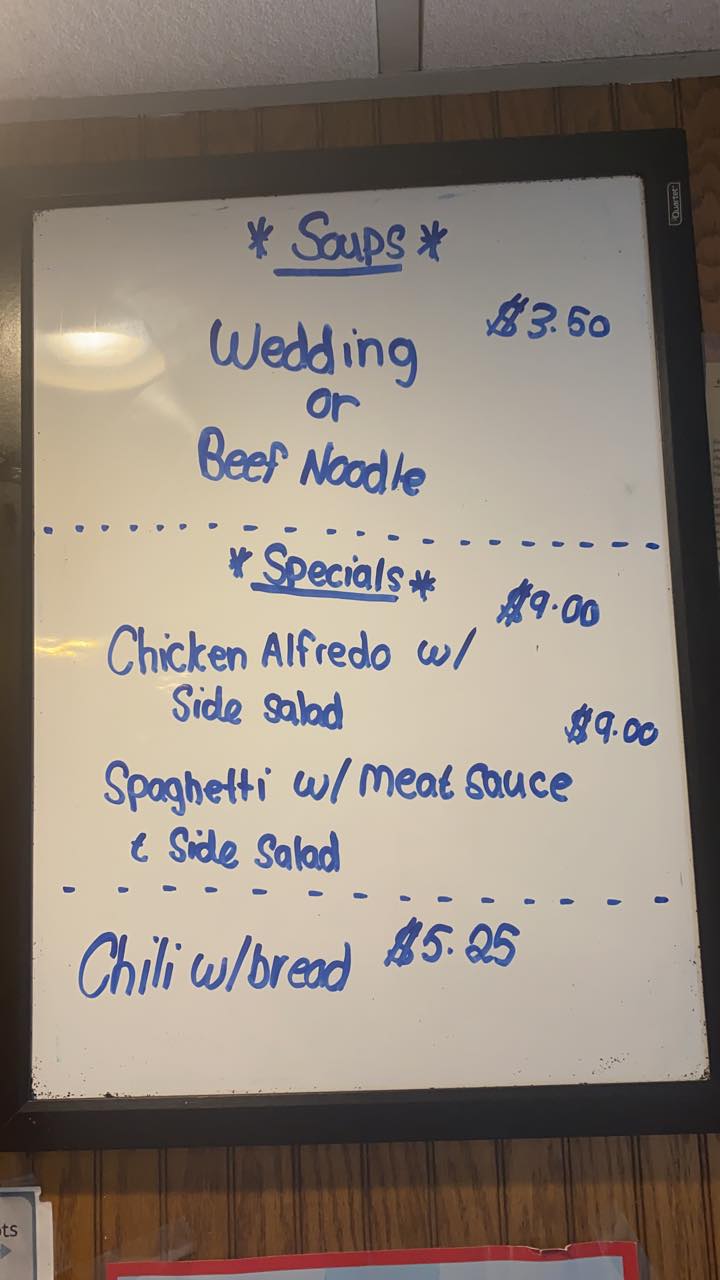 Quartet
* Soups *
$3.50
Wedding
or
Beef Noodle
* Specials *
$9.00
Chicken Alfredo w/
Side Salad
$9.00
Spaghetti w/ meat Sauce
& Side Salad
Chili w/bread $5.25